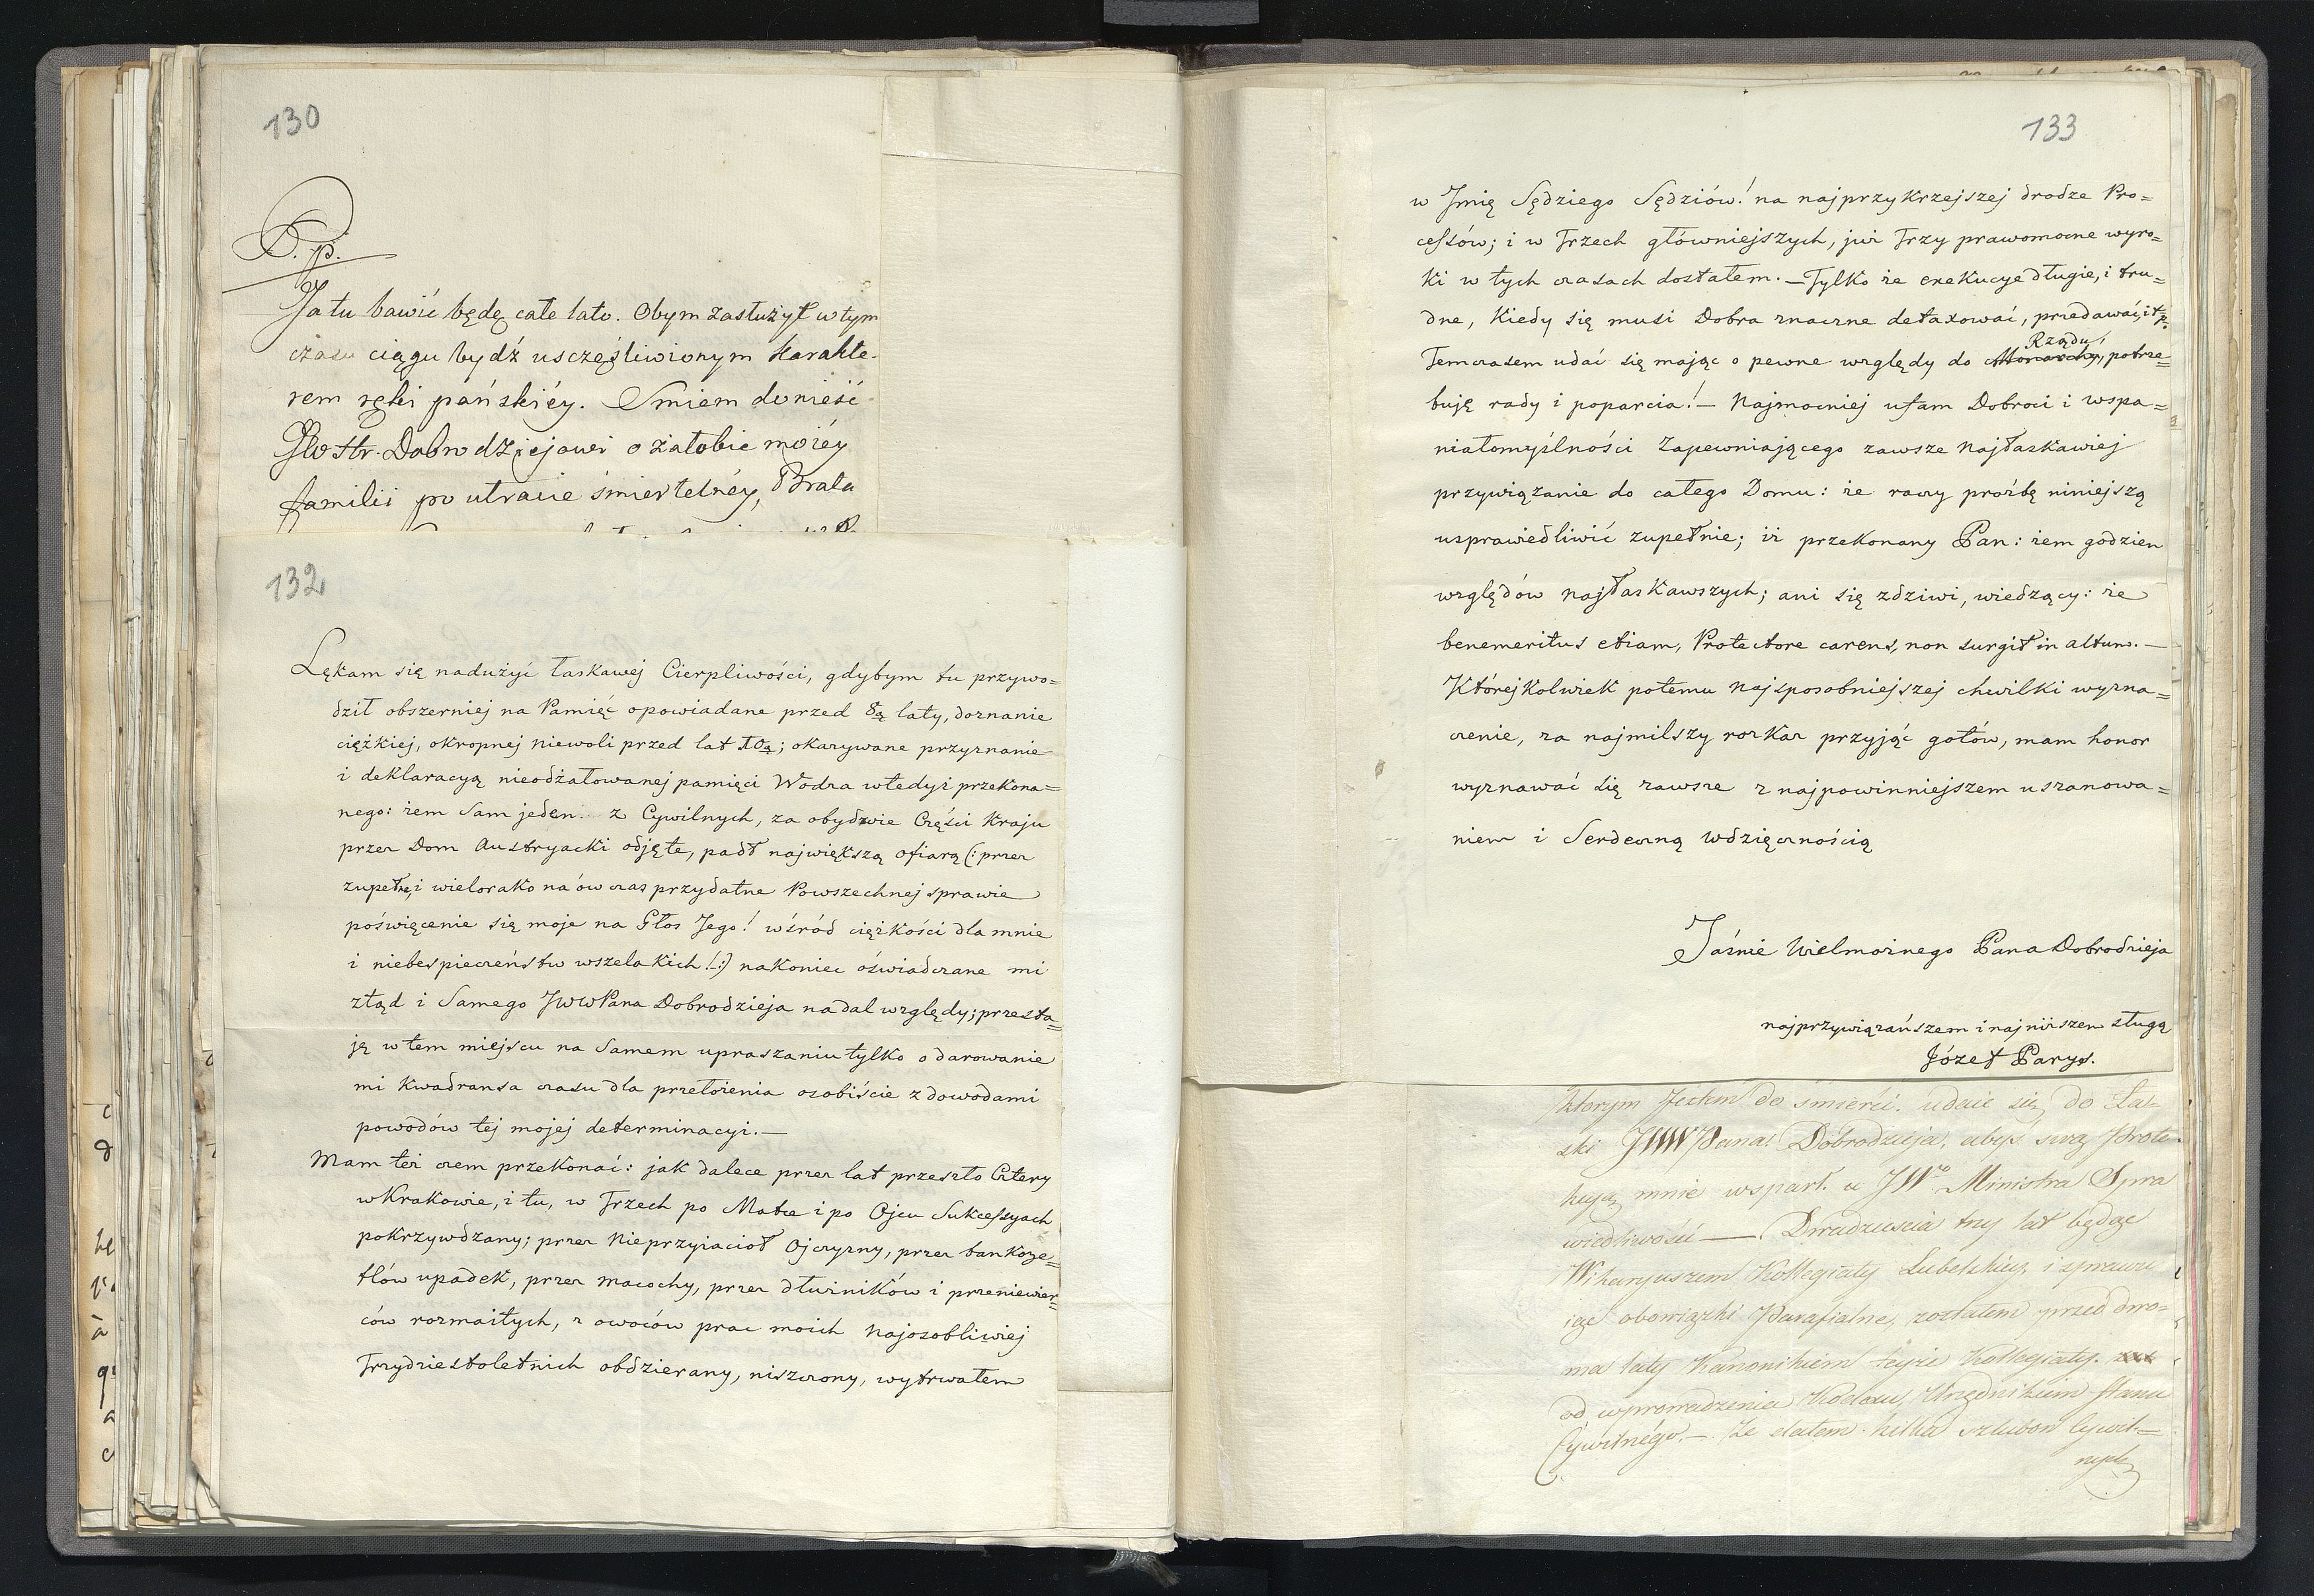 130
D. p.
Ja tu bawić będę całe lato. Obym zasłużył w tym
czasu ciągu bydź uszczęśliwionym Karakte-
rem ręki pańskiéy. Smiem donieść
JW Hr. Dobrodziejowi o żałobie moiéy
familii po utracie śmiertelnéy, Brata
132
Lękam się nadużyć łaskawej Cierpliwości, gdybym tu przywo=
dził obszerniej na Pamięć opowiadane przed 8ą laty, doznanie
ciężkiej, okropnej niewoli przed lat 10ą; okazywane przyznanie
i deklaracyą nieodżałowanej pamięci Wodza wtedyż przekona=
nego: żem Sam jeden z Cywilnych, za obydwie Części Kraju
przez Dom Austryacki odjęte, padł największą ofiarą (: przez
zupełne, i wielorako na ów czas przydatne Powszechnej sprawie
poświęcenie się moje na Głos Jego! wśród ciężkości dla mnie
i niebespieczeństw wszelakich!:) nakoniec oświadczane mi
ztąd i Samego JWWPana Dobrodzieja nadal względy; przesta=
ję w tem miejscu na Samem upraszaniu tylko o darowanie
mi Kwadransa czasu dla przełożenia osobiście z dowodami
powodów tej mojej determinacyi.—
Mam też czem przekonać: jak dalece przez lat przeszło Cztery
w Krakowie, i tu, w Trzech po Matce i po Ojcu Sukcessyach
pokrzywdzany; przez Nieprzyiaciół Ojczyzny, przez bankoze=
tlów upadek, przez macochy, przez dłużników i przeniewier=
ców rozmaitych, z owoców prac moich Najosobliwiej
Trzydziestoletnich obdzierany, niszczony, wytrwałem
133
w Jmię Sędziego Sędziów! na najprzykrzejszej drodze Pro=
cessów; i w Trzech główniejszych, już Trzy prawomocne wyro=
ki w tych czasach dostałem.—Tylko że exekucye długie, i tru=
dne, Kiedy się musi Dobra znaczne detaxować, przedawać, i t.p.
Rządu,
Temczasem udać się mając o pewne względy do Monarchy, potrze=
buję rady i poparcia!— Najmocniej ufam Dobroci i wspa=
niałomyślności Zapewniającego zawsze Najłaskawiej
przywiązanie do całego Domu: że raczy prośbę niniejszą
usprawiedliwić zupełnie; iż przekonany Pan: żem godzien
względów Najłaskawszych; ani się zdziwi, wiedzący: że
benemeritus etiam, Protectore carens, non surgit in altum.—
Którejkolwiek potemu Najsposobniejszej chwilki wyzna=
czenie, za najmilszy rozkaz przyjąć gotów, mam honor
wyznawać się zawsze z najpowinniejszem uszanowa=
niem i Serdeczną wdzięcznością
Jaśnie Wielmożnego Pana Dobrodzieja
najprzywiązańszem i najniższem sługą
Józef Parys.
którym jestem do śmierci. udaie się do Łas-
ski JWW Pana! Dobrodzieja, abyś swą Prote-
kcyą mnie wsparł. u JWo Ministra Spra
wiedliwość — Dwadzieścia trzy lat będąc
Wikaryuszem Kollegiaty Lubelskiey, i sprawu
iąc obowiązki Parafialne, zostałem przed dwo=
ma laty Kanonikiem teyże Kollegiaty.
od wprowadzenia Kodexu, Urzędnikiem Stanu
Cywilnégo.— Ze dałem kilka szlubow Cywil=
nych